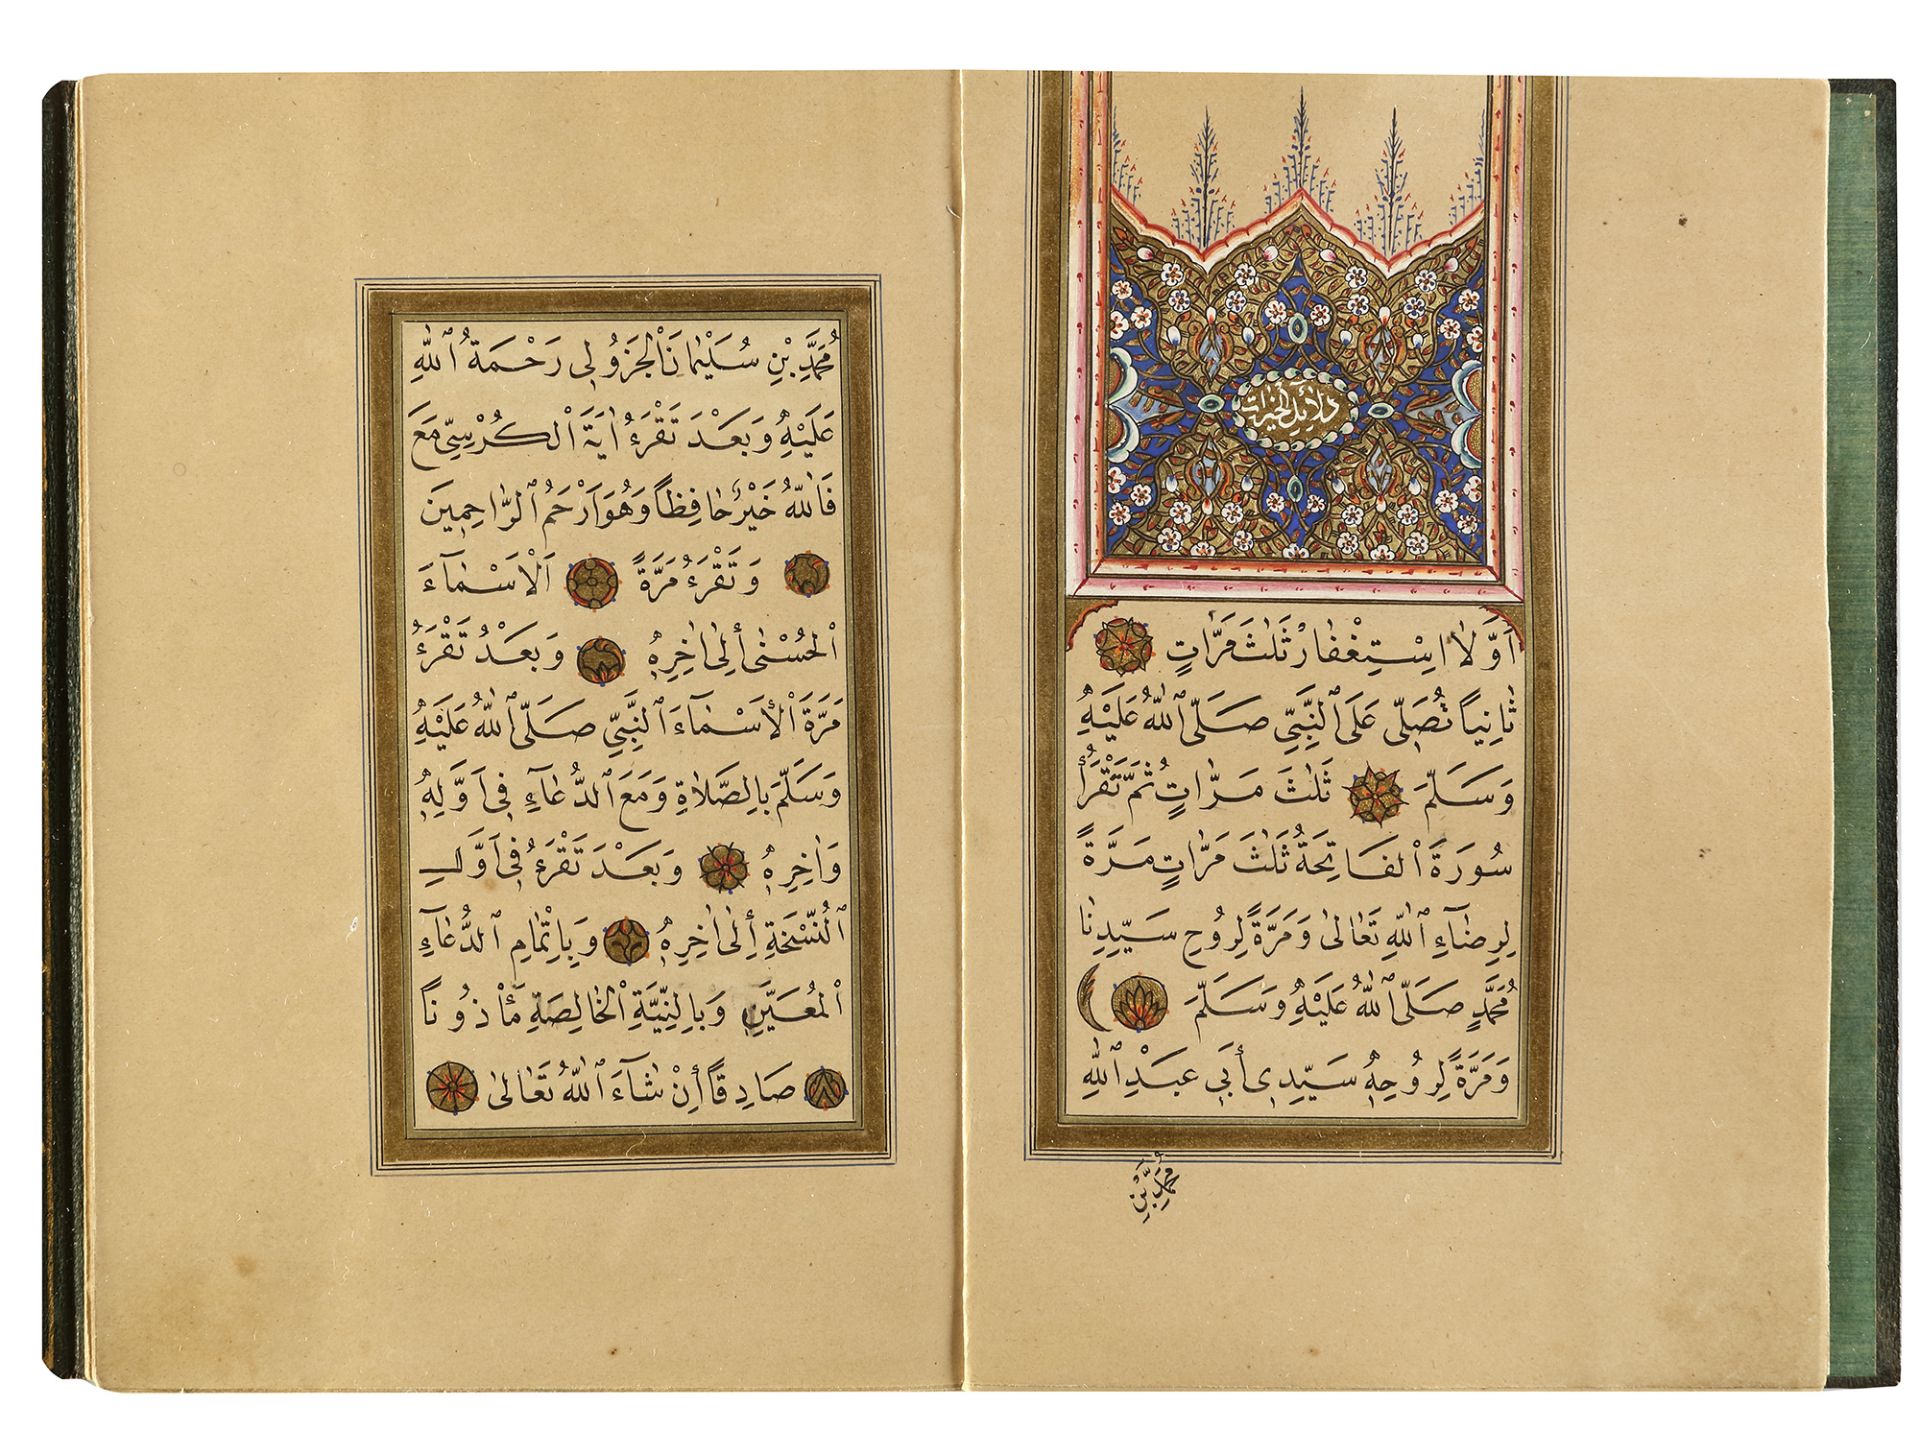 دلائل الخيرات
اَوَّلًا اِسْتِغْفَارْ ثَلٰثَ مَرَّاتٍ
ثَانِياً تُصَلّ۪ى عَلَى النَّبِىِّ صَلَّى اللّٰهُ عَلَيْهِ
وَسَلَّمَ ثَلٰثَ مَرَّاتٍ ثُمَّ تَقْرَأُ
سُورَةَ الْفَاتِحَةُ ثَلٰثَ مَرَّاتٍ مَرَّةً
لِرِضَٓاءِ اللّٰهِ تَعَالٰى وَمَرَّةً لِرُوحِ سَيِّدِنَا
مُحَمَّدٍ صَلَّى اللّٰهُ عَلَيْهِ وَسَلَّمَ
وَمَرَّةً لِرُوحِه۪ سَيِّد۪ى أَب۪ى عَبْدِ اللّٰهِ
مُحَمَّدُ بْنِ
مُحَمَّدِ بْنِ سُلَيْمَانَ الْجَزُول۪ى رَحْمَةُ اللّٰهِ
عَلَيْهِ وَبَعْدَ تَقْرَءُ اٰيَةَ الْكُرْسِىِّ مَعَ
فَاللّٰهُ خَيْرٌ حَافِظاً وَهُوَ اَرْحَمُ الرَّاحِم۪ينَ
وَتَقْرَءُ مَرَّةً اَلْاَسْمَٓاءَ
الْحُسْنٰى أِلٰى اٰخِرِه۪ وَبَعْدْ تَقْرَءُ
مَرَّةَ الْأَسْمَٓاءَ النَّبِىِّ صَلَّى اللّٰهُ عَلَيْهِ
وَسَلَّمَ بِالصَّلَاةِ وَمَعَ الدُّعَٓاءِ ف۪ى اَوَّلِه۪
وَاٰخِرِه۪ وَبَعْدَ تَقْرَءُ ف۪ى اَوَّلِ
النُّسْخَةِ أِلٰى اٰخِرِه۪ وَبِاِتْمَامِ الدُّعَٓاءِ
الْمُعَيَّنِ وَبِالنِّيَّةِ الْخَالِصَةِ مَأْذُونًا
صَادِقًا أِنْ شَٓاءَ اللّٰهُ تَعَالٰى